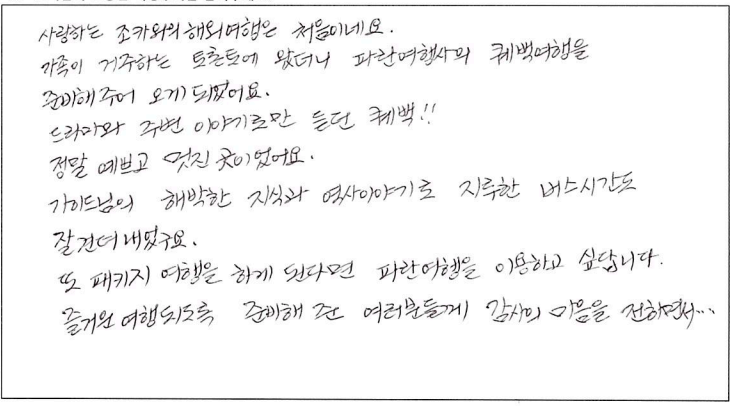 사랑하는 조카와의 해외여행은 처음이네요.
가족이 거주하는 토론토에 왔더니 파란여행사의 퀘백여행을
준비해주어 오게 되었어요.
드라마와 주변 이야기로만 듣던 퀘백!!
정말 예쁘고 멋진 곳이었어요.
가이드님의 해박한 지식과 역사이야기로 지루한 버스시간도
잘 견뎌내었구요.
또 패키지 여행을 하게 된다면 파란여행을 이용하고 싶답니다.
즐거운 여행되도록 준비해 준 여러분들께 감사의 마음을 전하면서...